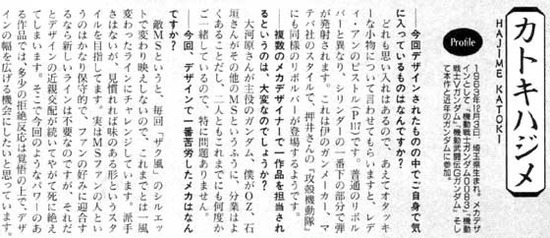 カトキハジメ
HAJIME KATOKI
Profile
1963年8月3日、埼玉県生まれ。メカデザ
インとして『機動戦士ガンダム0083』『機動
戦士Vガンダム』『機動武闘伝Gガンダム』そし
て本作と近年のガンダムに参加。
―今回デザインされたものの中でご自身で気
に入っているものはなんですか?
どれも思い入れはあるので、あえてオタッキ
ーな小物について言わせてもらいますと、レデ
ィ・アンのピストル[P.117]です。普通のリボル
バーと異なり、シリンダーの一番下の部分で弾
が発射されます。これは伊のガンメーカー、マ
テバ社のスタイルで、押井さんの『攻殻機動隊』
にも同様のリボルバーが登場するようです。
―複数のメカデザイナーで一作品を担当され
るというのは、大変なのでしょうか?
大河原さんが主役のガンダム、僕がOZ、石
垣さんがその他のMSというふうに、分業はよ
くあることだし、二人ともこれまでにも何度か
ご一緒しているので、特に問題ありません。
―今回、デザインで一番苦労したメカはなん
ですか?
敵MSというと、毎回「ザク」風のシルエッ
トで変わり映えしないので、これまでとは一風
変わったラインにチャレンジしています。派手
さはないが、見慣れれば味のある形というスタ
イルを目指してます。実はMSファンの人とい
うのはかなり保守的で、ファンの好みに迎合す
るなら新しいラインは不要なのですが、それだ
とデザインの近親交配が続いてやがて死に絶え
てしまいます。そこで今回のようなパワーのあ
る作品では、多少の拒絶反応は覚悟の上で、デザ
インの幅を広げる機会にしたいと思っています。